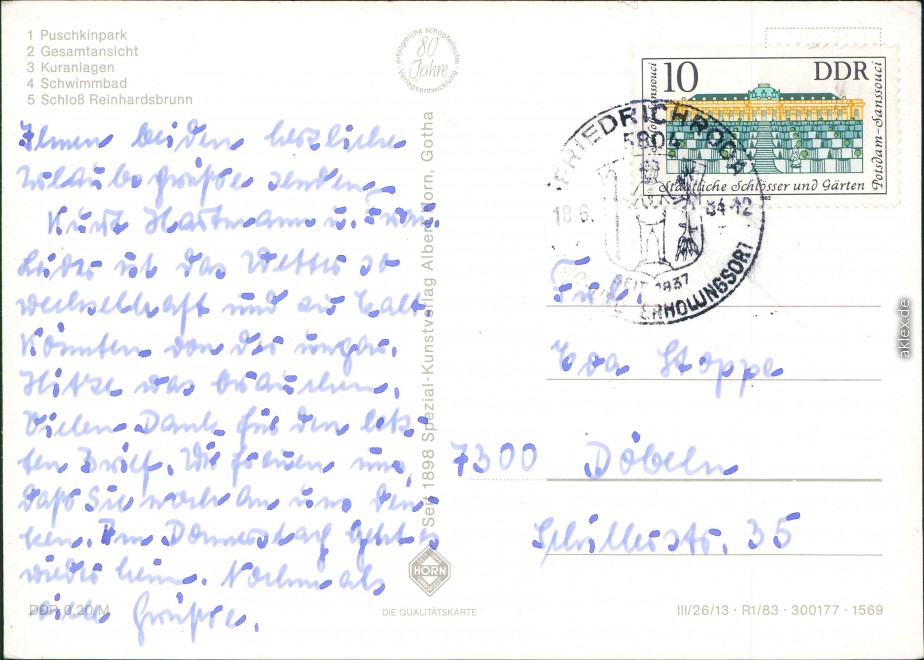 1 Puschkinpark
2 Gesamtansicht
3 Kuranlagen
4 Schwimmbad
5 Schloß Reinhardsbrunn
erfolgreiche schöpferische
80
Jahre
Verlagsentwicklung
Ihnen beiden herzliche
Urlaubsgrüße senden
Kurt Hartmann u. Frau.
Leider ist das Wetter so
wechselhaft und zu kalt
Könnten von der ungar.
Hitze was brauchen.
Vielen Dank für den letz-
ten Brief. Wir freuen uns,
daß Sie noch an uns den-
ken. Am Donnerstag geht es
wieder heim. Nochmals
viele Grüße.
DDR 0,20 M
Seit 1898 Spezial-Kunstverlag Albert Horn, Gotha
HORN
DIE QUALITÄTSKARTE
10
DDR
Potsdam-Sanssouci
Staatliche Schlösser und Gärten
FRIEDRICHRODA
5804
18.6. 84-12
SEIT 1837
ERHOLUNGSORT
Eva Stoppe
7300 Döbeln
Schillerstr. 35
III/26/13 · R1/83 · 300177 · 1569
aklex.de